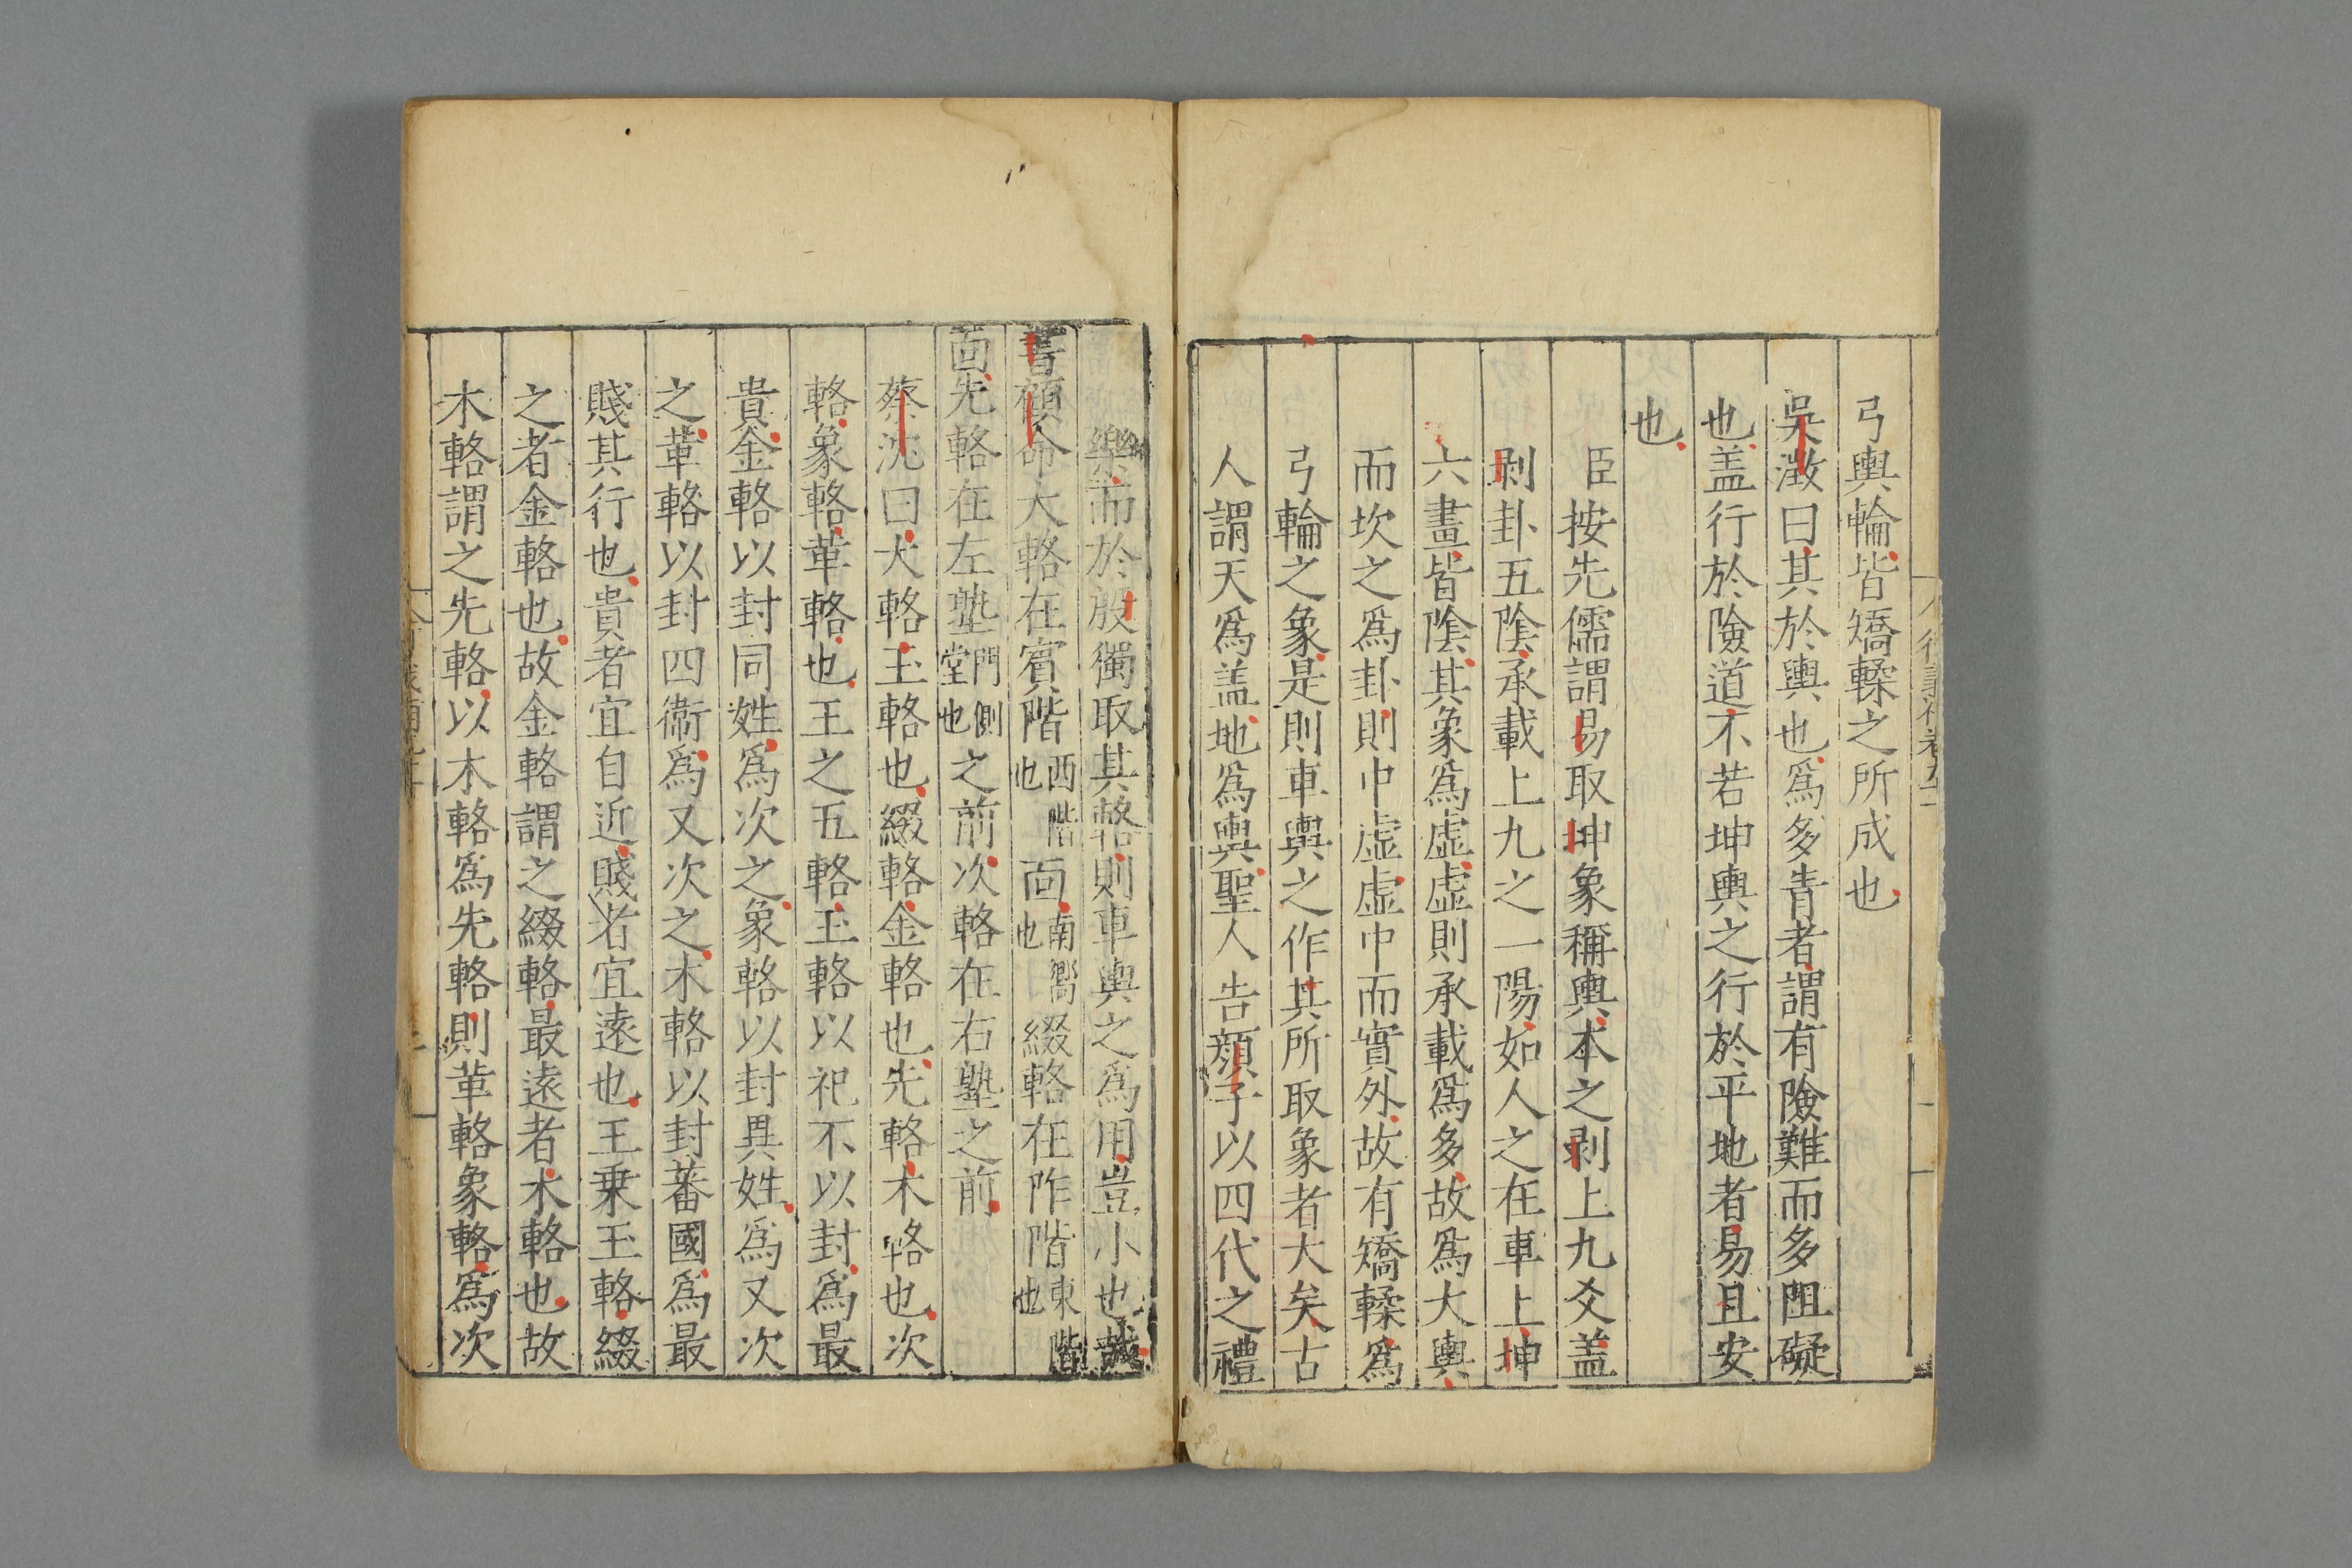 弓輿輪皆矯輮之所成也
吳澂曰其於輿也爲多眚者謂有險難而多阻礙
也盖行於險道不若坤輿之行於平地者易且安
也
臣按先儒謂易取坤象稱輿本之剥上九爻盖
剥卦五陰承載上九之一陽如人之在車上坤
六畫皆陰其象爲虚虚則承載爲多故爲大輿
而坎之爲卦則中虚虚中而實外故有矯輮爲
弓輪之象是則車輿之作其所取象者大矣古
人謂天爲盖地爲輿聖人告顏子以四代之禮
樂而於殷獨取其輅則車輿之爲用豈小也哉
書顧命大輅在賓階西階也面南嚮也綴輅在阼階東階也
面先輅在左塾門側堂也之前次輅在右塾之前
蔡沈曰大輅玉輅也綴輅金輅也先輅木輅也次
輅象輅革輅也王之五輅玉輅以祀不以封爲最
貴金輅以封同姓爲次之象輅以封異姓爲又次
之革輅以封四衞爲又次之木輅以封蕃國爲最
賤其行也貴者宜自近賤者宜遠也王乗玉輅綴
之者金輅也故金輅謂之綴輅最遠者木輅也故
木輅謂之先輅以木輅爲先輅則革輅象輅爲次